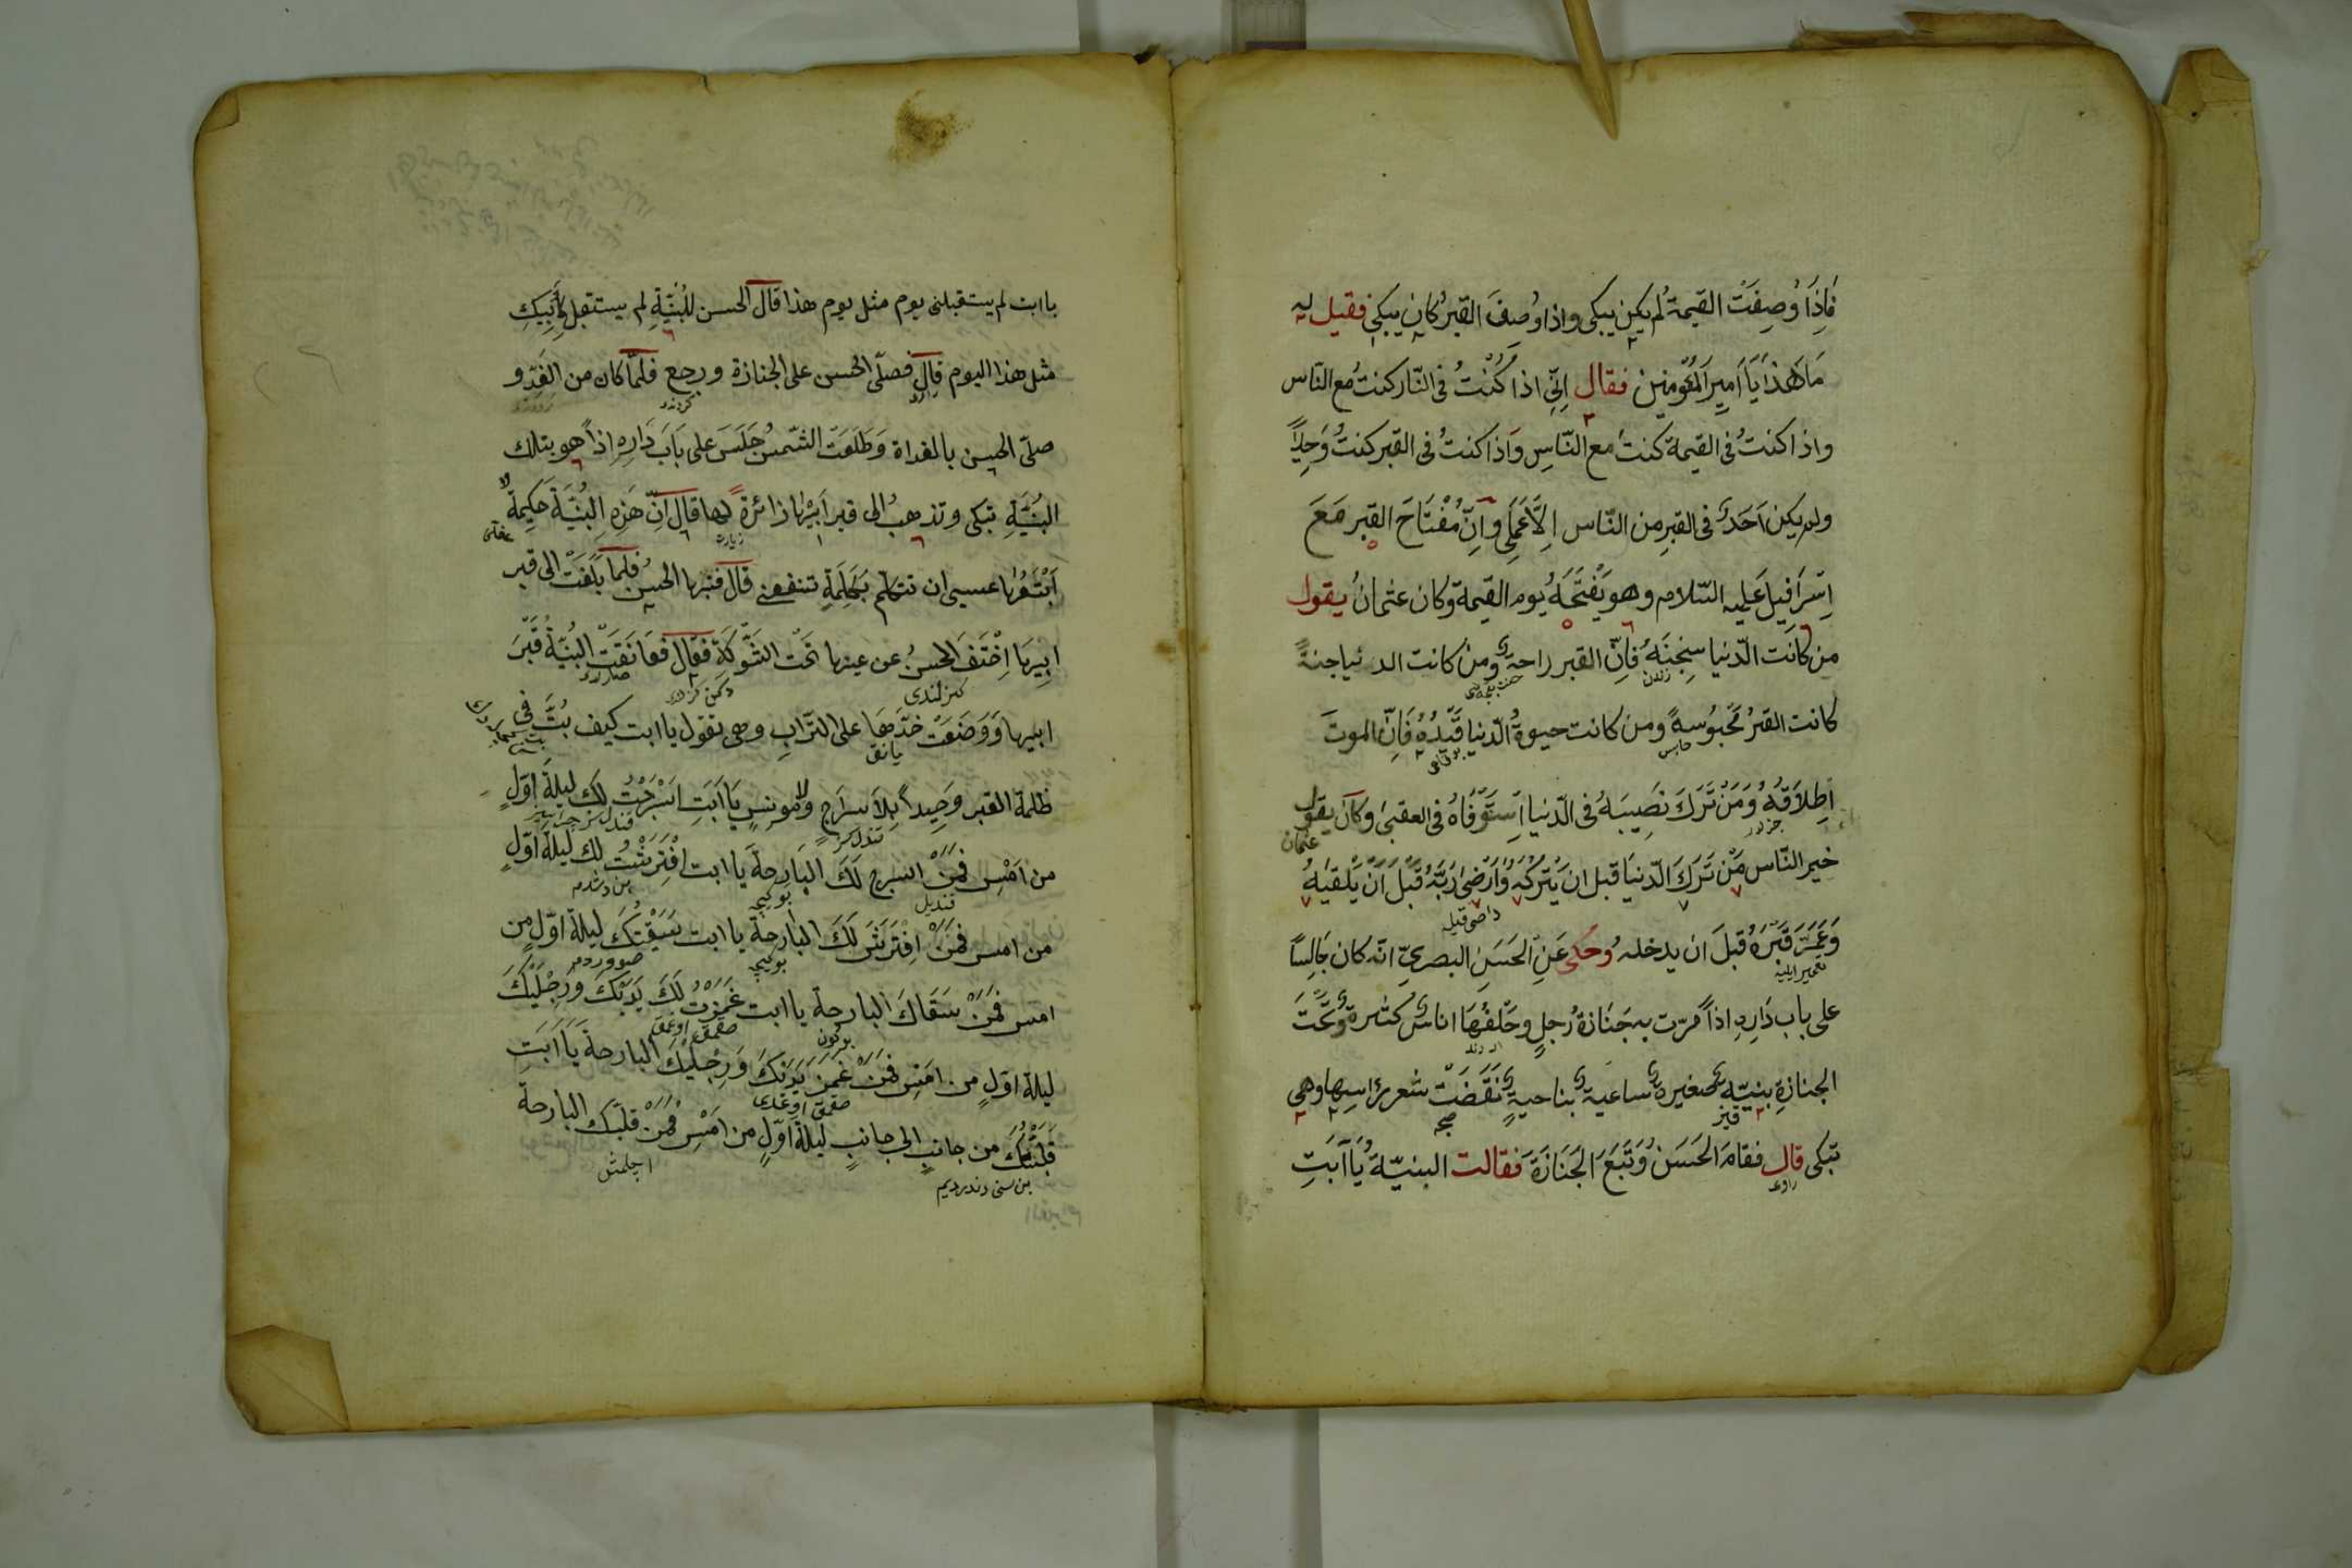 فَاِذَا وُصِفَتُ القيمة لم يكن يبكى واذا وُصِفَ القبرُ كان يبكى فقيل له
مَا هَذا يَا اَمِيرَ المُؤمِنين فقال اِنِّى اذا كُنْتُ فى النّار كنتُ مع النّاس
واذا كنتُ فى القيمة كنت مع النّاسِ وَاذا كنتُ فى القبر كنتُ وَحِيداً
ولم يكن اَحَدٌ فى القبرِ من النّاس اِلاَّ عَمَلِى وَاِنّ مُفْتَاحَ القبر مَعَ
اِسْرَافِيلَ عَلَيه السّلام وهو يَفْتَحُهُ يوم القيمة وكان عثمانُ يقول
من كَانَت الدّنيا سِجْنَهُ فَاِنّ القبر راحة ومن كانت الدنيا جنةً
زندان
كانت القبرُ مَحْبُوسةً ومن كانت حيوةُ الدّنيا قَيْدُهُ فَاِنّ الموتَ
حابس
اِطْلاَقُهُ وَمَنْ تَرَكَ نَصِيبَهُ فى الدّنيا اِسْتَوْفَاهُ فى العقبى وكان يقول
عثمان
خير النّاس مَنْ تَرَكَ الدّنيَا قبل ان يَتْرُكَهُ وَاَرْضَى رَبَّهُ قَبْلَ اَنْ يَلْقَيهُ
راضى قيله
وَعَمَّرَ قَبْرَهُ قبلَ ان يدخله وحَكى عَنِ الحَسَنِ البصرىّ انّه كان جَالِسًا
تعمير ايليه
على باب دَارِهِ اذاً مرّت به جَنَازَة رُجلٍ وخَلْفُهَا اناس كثيرة وتحَت
الجنازةِ بنيّة صغيرة ساعية بناحية نَقَضَتْ شعر رَاسِهَا وهى
قيز
تبكى قال فقامَ الحَسَنُ وَتَبَعَ الجَنَازَةَ فقالت البنيّة يَا اَبَتِ
راوى
يا ابت لم يستقبلنى يوم مثل يوم هذا قال الحسن للبُنَيّةِ لم يستقبل لِاَبِيكِ
مثل هذا اليوم قال فصلّى الحسن على الجنازة ورجع فلمّا كان من الغَدِ و
صلّى الحسن بالغداة وَطَلَعَت الشّمسُ جَلَسَ على بَابَ دَارِهِ اِذاً هو بتلك
البُنَيَّةِ تبكى وتذهبُ الى قبر اَبِيْهَا زائرةً لها قال اِنّ هَذِهِ البُنَيَّةَ حَكِيمَةٌ
زيارت
اَتْبَعُهَا عسى ان تتكلم بِكَلِمَةِ تنفعنى قال فتبعها الحسن فلمّا بَلَغَتْ الى قبر
ابِيهَا اِخْتَفَ الحسنُ عن عينها تَحْت الشَّوْكَةِ فقال فعَانَقَتْ البُنَيَّةُ قَبْرَ
كزلندى
ابيها وَوَضَعَتْ خدَّهَا على التّرابِ وهى تقول يا ابت كيف بُتَّ فى
يانق
ظلمة القبر وَحِيداً بِلاَ سرَاجٍ ولا مونسٍ يَا اَبَتِ اَسْرَجْتُ لَكَ ليلةَ اوّلِ
من اَمْسِ فَمَنْ اسرج لَكَ البَارِحةَ يا ابت افْتَرَشْتُ لك ليلة اوّلِ
قنديل
بوكيجه
من امس فَمَنْ اِفْتَرَشَ لَكَ البَارحةَ يا ابت سَقَيْتُكَ ليلةَ اوّلِ من
بوكيجه
امس فَمَنْ سَقَاكَ البارحةَ يا ابت غَمَزْتُ لَكَ يَدَيْكَ وَرِجْلَيْكَ
ليلة اوّلِ من امَسِ فَمَنْ غَمَزَ يَدَيْكَ وَرِجْلَيْكَ البارحةَ يَا اَبَتِ
قَلَبْتُكَ من جانبٍ الى جانبٍ ليلةَ اوّلِ من اَمْسِ فَمَنْ قَلَبَكَ البارحةَ